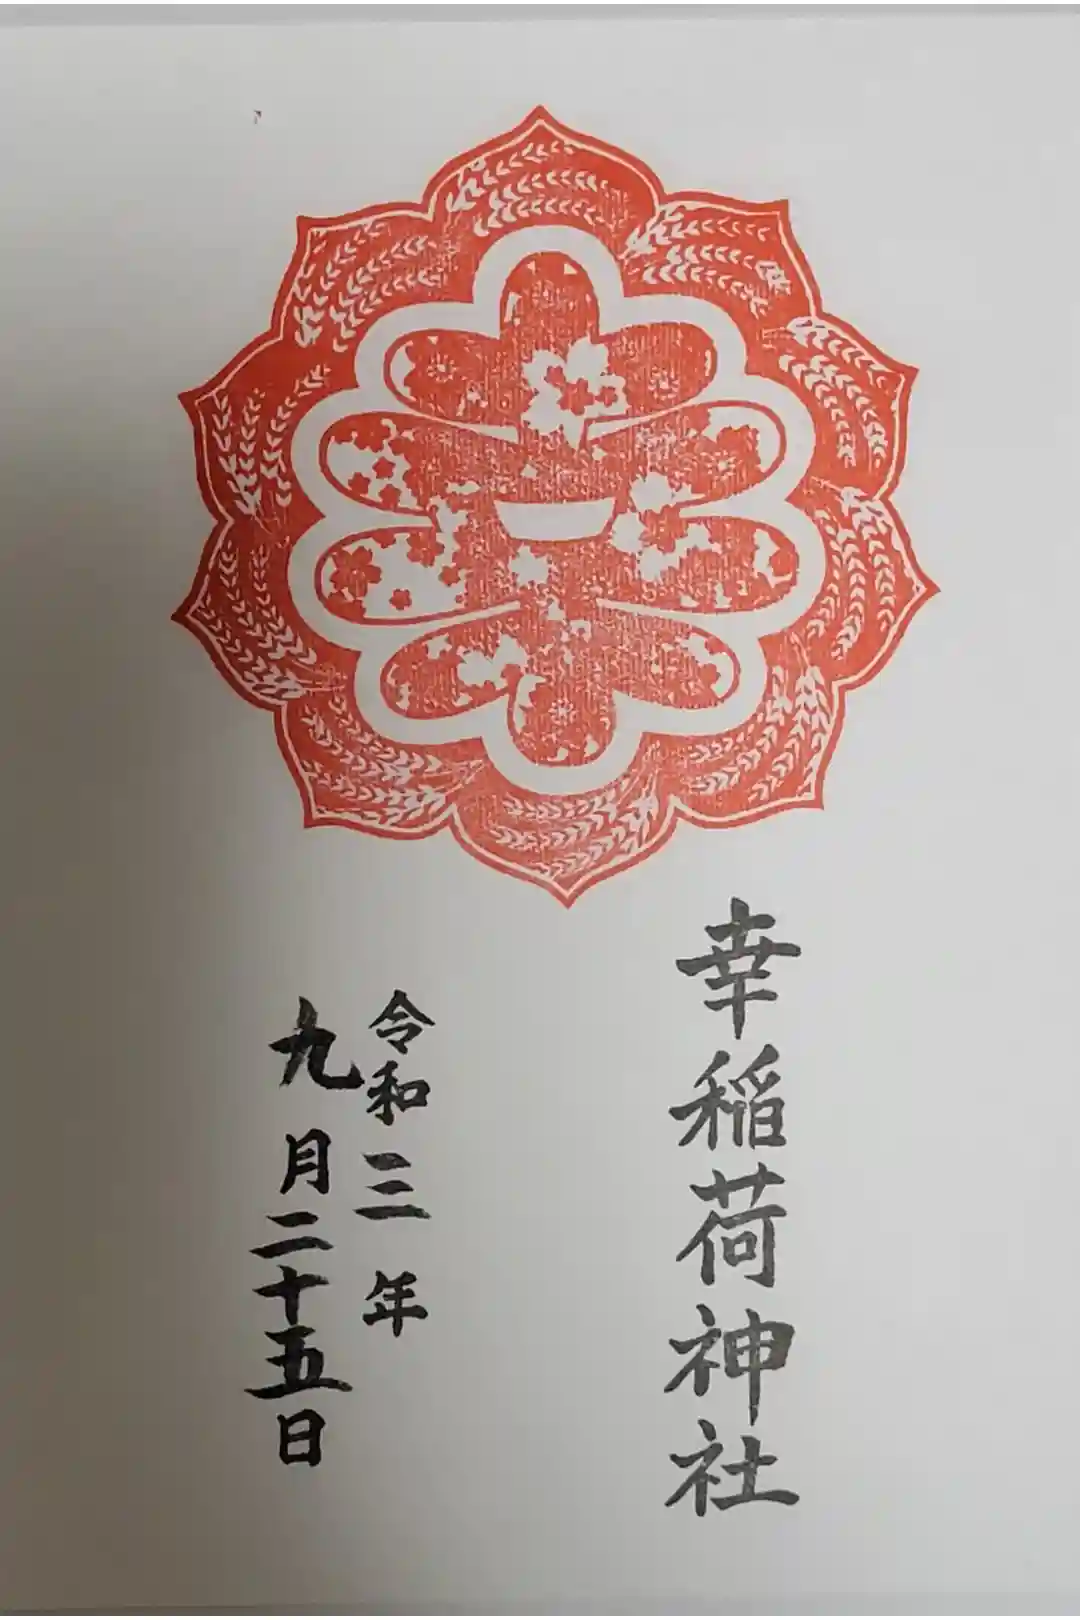 幸稲荷神社
令和三年
九月二十五日